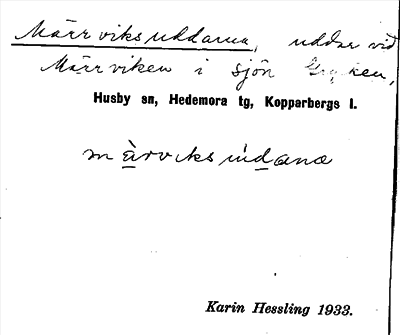 Märrviksuddarna, uddar vid
Märrviken i sjön
Husby sn, Hedemora tg, Kopparbergs l.
m àrviksúdana
Karin Hessling 1933.